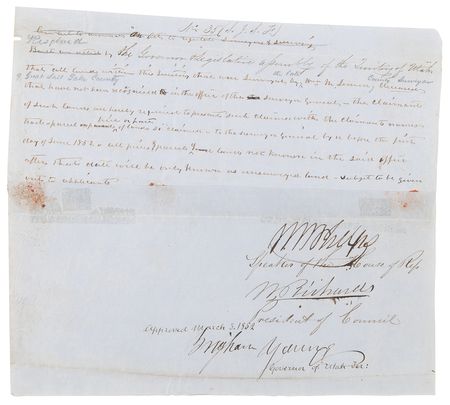 No 35 (H. J. S. F.)
An act in relation to Surveyors & Surveying
Resolved
Be it enacted by the Governor & Legislative assembly of the Territory of Utah
of Great Salt Lake County the late County Surveyor
that all lands within this Territory that were surveyed by
that have not been recognized in the office of the Surveyor General, the claimants
of such lands are hereby required to present such claims with the claimants names
of lands so claimed to the Surveyor General by or before the first
day of June 1852 all lands not known in the said office
after that date will be only known as unsurveyed land subject to be given
out to applicants
W W Phelps
Speaker of the House of Rep
W. Richards
President of Council
Approved March 3, 1852
Brigham Young
Governor of Utah Ter: